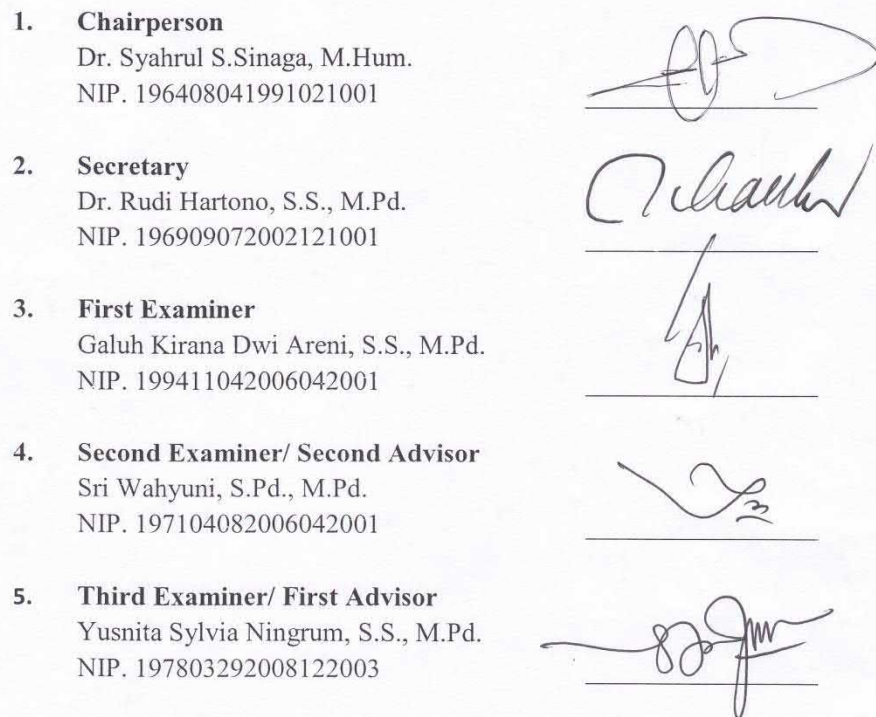 1. Chairperson
Dr. Syahrul S.Sinaga, M.Hum.
NIP. 196408041991021001
2. Secretary
Dr. Rudi Hartono, S.S., M.Pd.
NIP. 196909072002121001
3. First Examiner
Galuh Kirana Dwi Areni, S.S., M.Pd.
NIP. 199411042006042001
4. Second Examiner/ Second Advisor
Sri Wahyuni, S.Pd., M.Pd.
NIP. 197104082006042001
5. Third Examiner/ First Advisor
Yusnita Sylvia Ningrum, S.S., M.Pd.
NIP. 197803292008122003